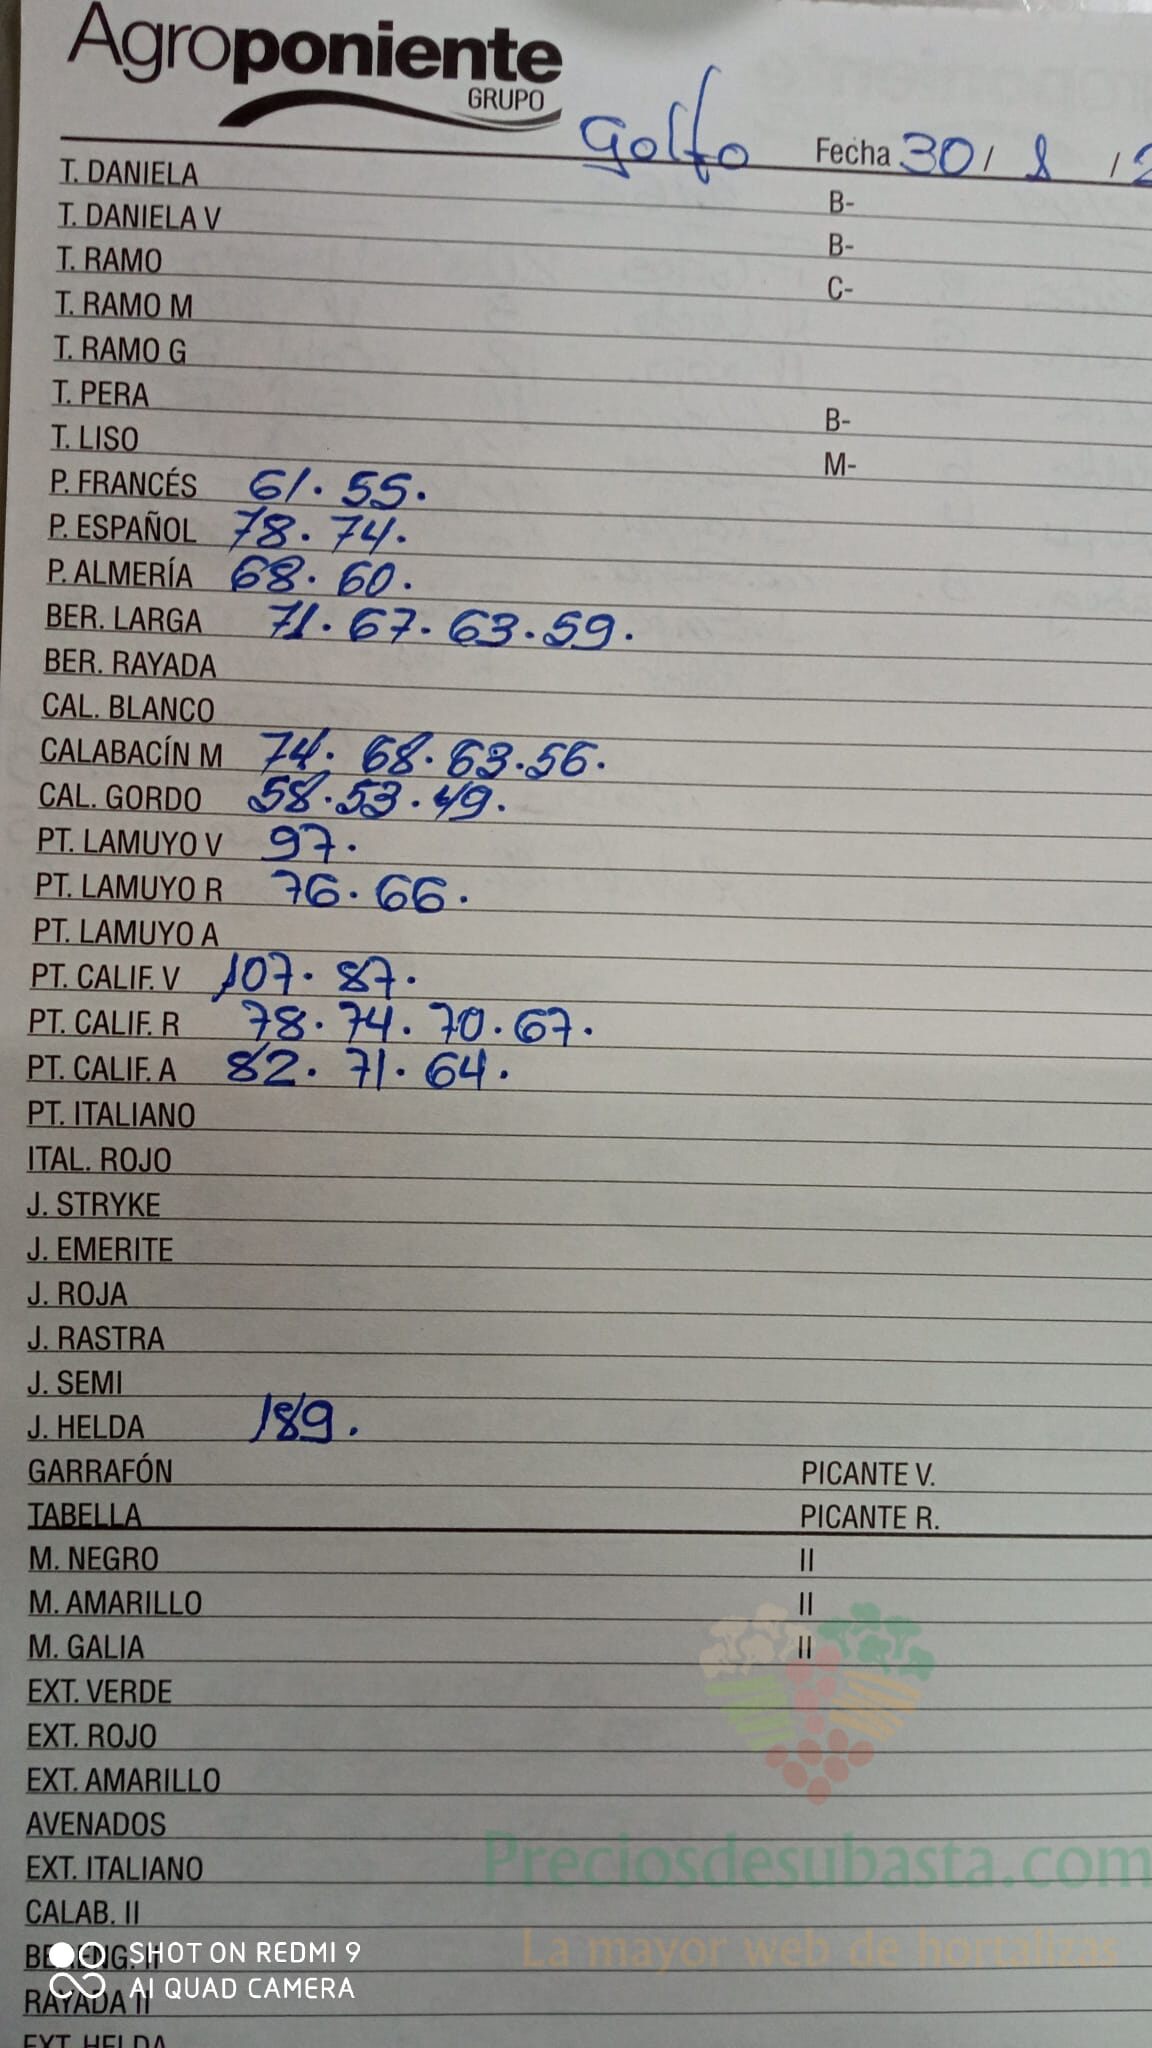 Agroponiente
GRUPO
Golfo Fecha 30/ 8 /2
T. DANIELA B-
T. DANIELA V B-
T. RAMO C-
T. RAMO M
T. RAMO G
T. PERA B-
T. LISO M-
P. FRANCÉS 61. 55.
P. ESPAÑOL 78. 74.
P. ALMERÍA 68. 60.
BER. LARGA 71. 67. 63. 59.
BER. RAYADA
CAL. BLANCO
CALABACÍN M 74. 68. 63. 56.
CAL. GORDO 58. 53. 49.
PT. LAMUYO V 97.
PT. LAMUYO R 76. 66.
PT. LAMUYO A
PT. CALIF. V 107. 87.
PT. CALIF. R 78. 74. 70. 67.
PT. CALIF. A 82. 71. 64.
PT. ITALIANO
ITAL. ROJO
J. STRYKE
J. EMERITE
J. ROJA
J. RASTRA
J. SEMI
J. HELDA 189.
GARRAFÓN PICANTE V.
TABELLA PICANTE R.
M. NEGRO II
M. AMARILLO II
M. GALIA II
EXT. VERDE
EXT. ROJO
EXT. AMARILLO
AVENADOS
EXT. ITALIANO
Preciosdesubasta.com
CALAB. II
La mayor web de hortalizas
BERENG. II
SHOT ON REDMI 9
AI QUAD CAMERA
RAYADA II
EXT. HELDA